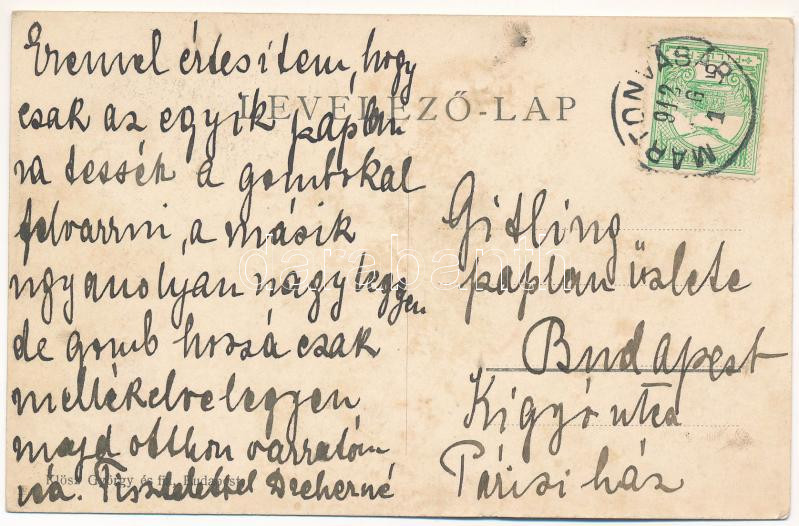 Ezennel értesítem, hogy
csak az egyik paplan
ra tessék a gombokat
felvarrni, a másik
ugyanolyan nagy legyen
de gomb hozzá csak
mellékelve legyen
majd otthon varratom
rá. Tisztelettel Dreherné
LEVELEZŐ-LAP
MARTONVÁSÁR
912
Gitling
paplan üzlete
Budapest
Kigyó utca
Párisi ház
Klösz György és fia, Budapest
darabanth